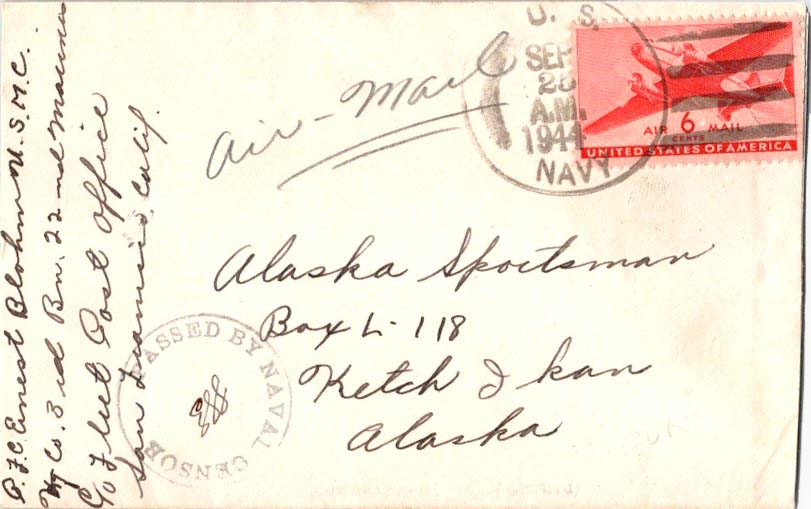 P.F.C. Ernest Blohm U.S.M.C.
Hq Co. 3rd Bn. 22nd Marines
c/o Fleet Post Office
San Francisco, Calif.
Air-Mail
U. S.
SEP
25
A.M.
1944
NAVY
AIR 6 MAIL
CENTS
UNITED STATES OF AMERICA
Alaska Sportsman
Box L-118
Ketch I kan
Alaska
PASSED BY NAVAL CENSOR